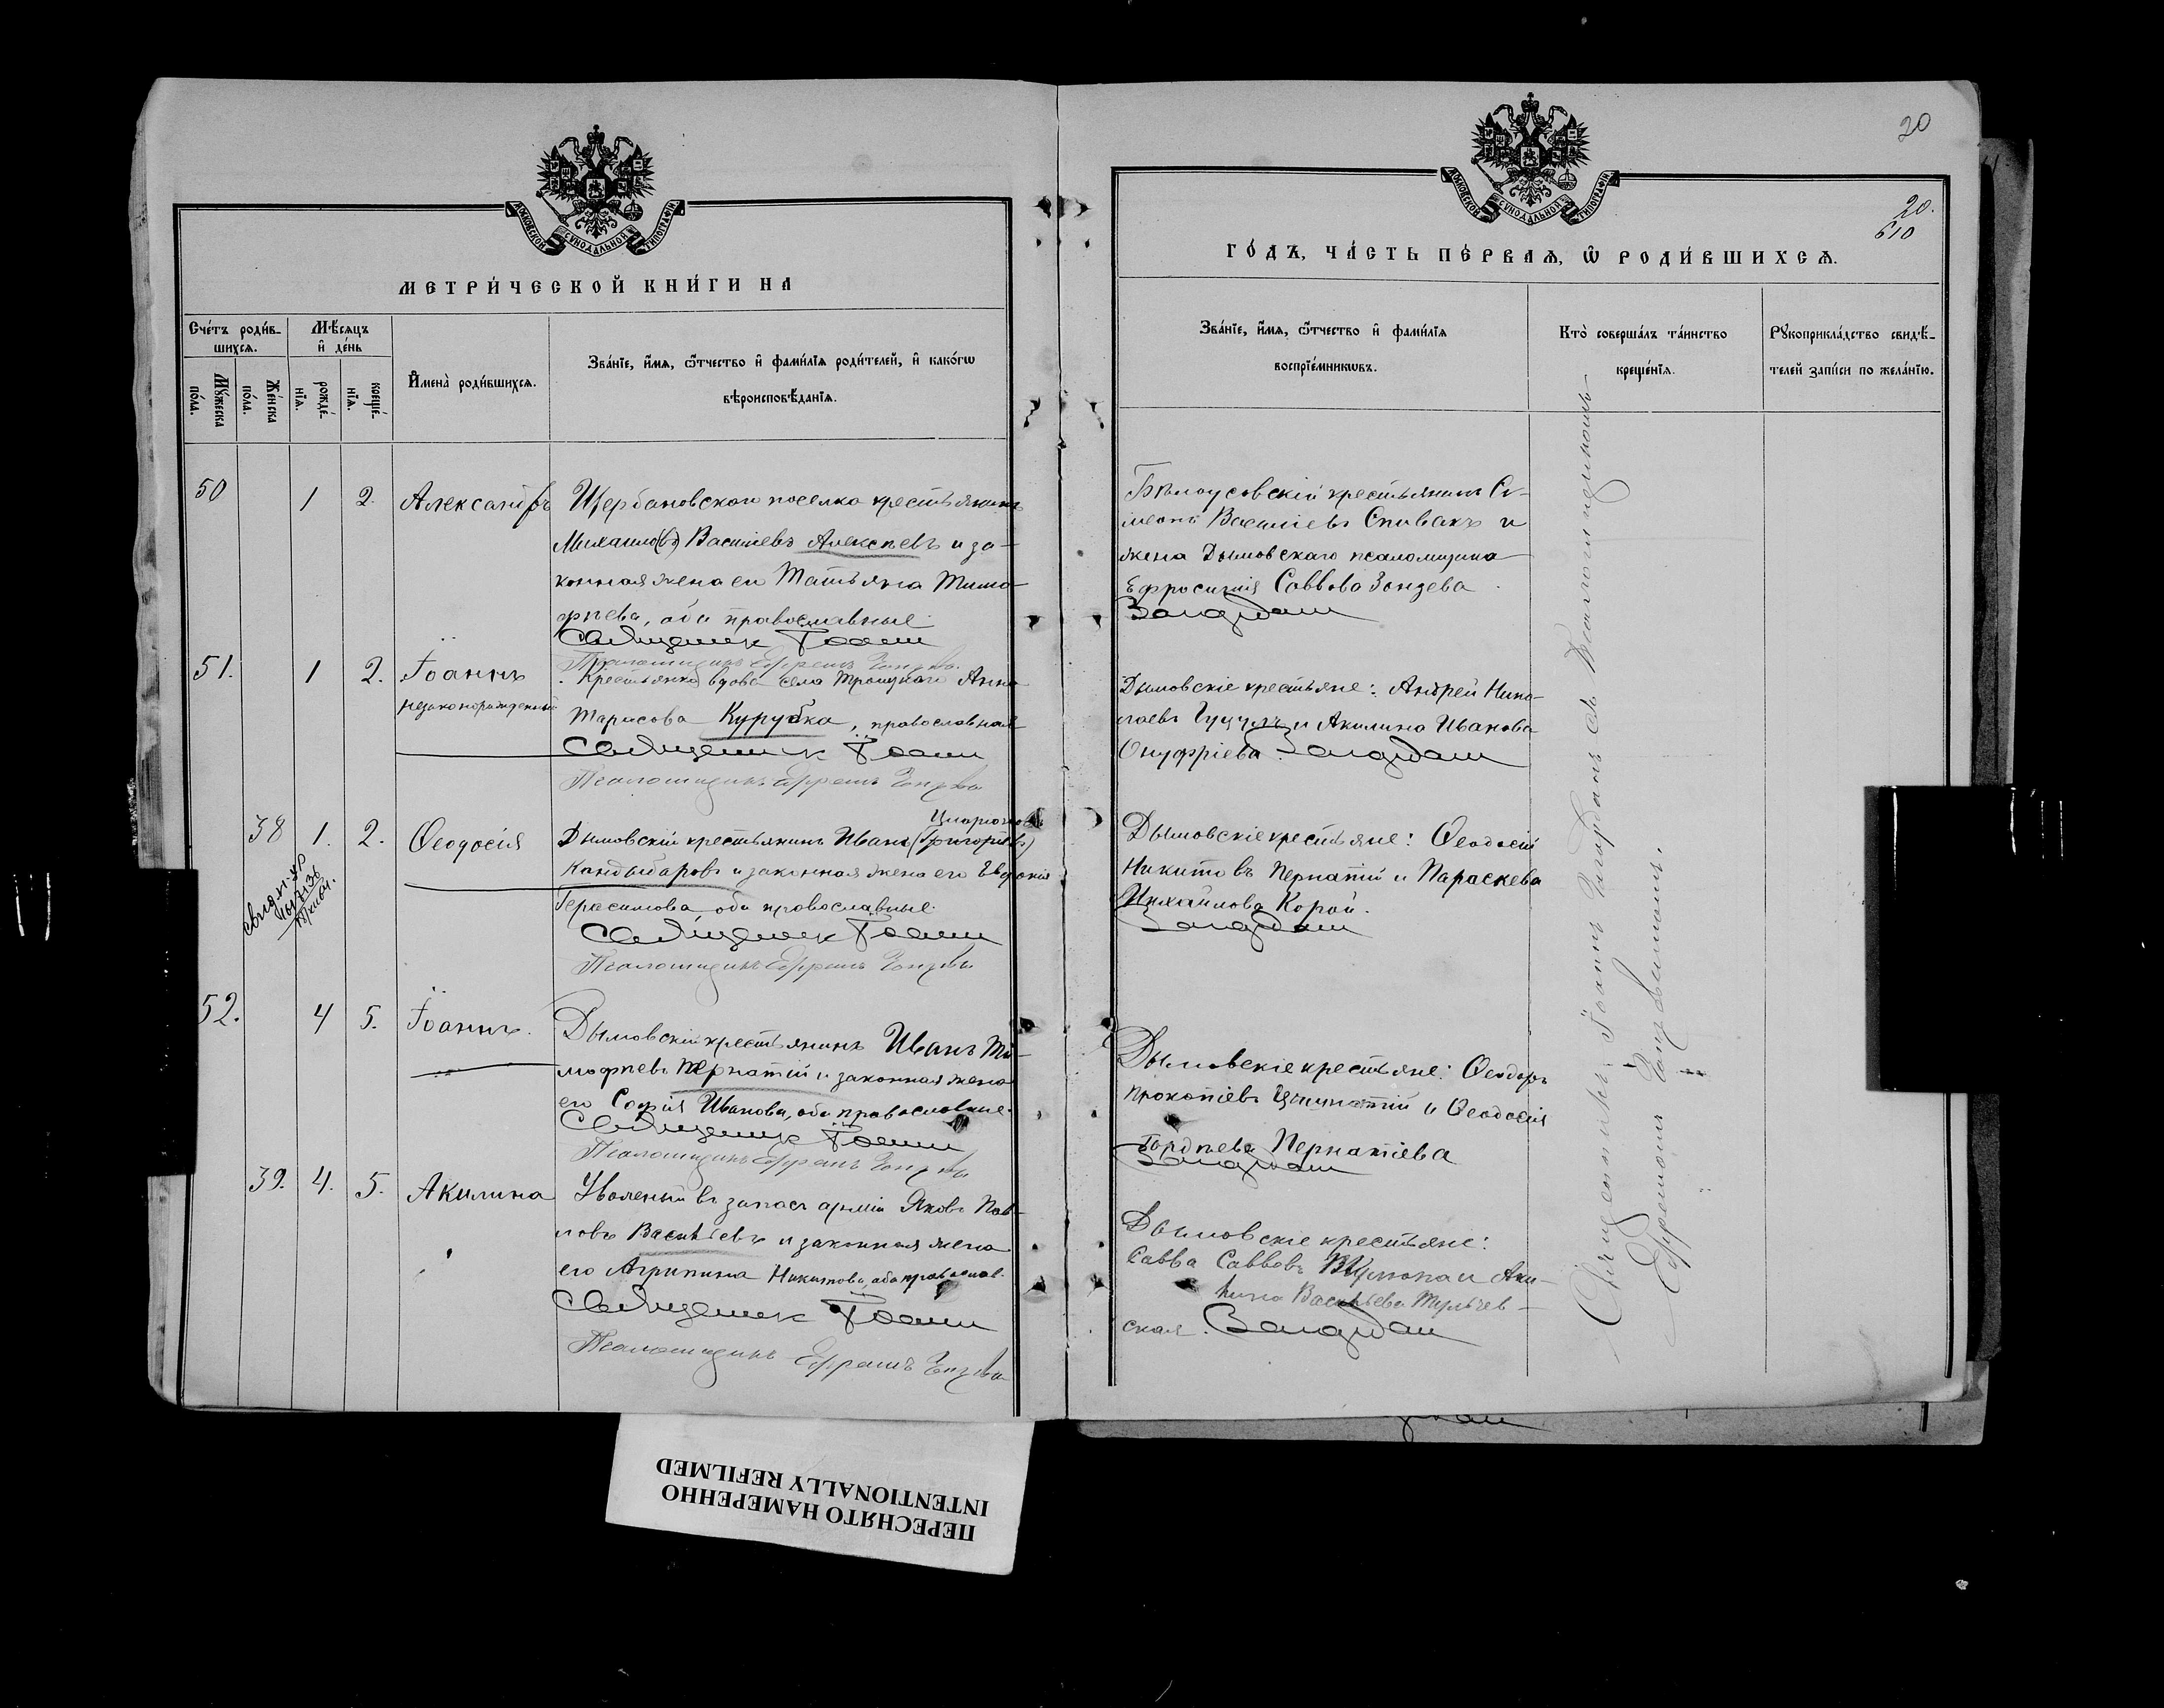 МЕТРИ́ЧЕСКОЙ КНИ́ГИ НА
Сче́тъ роди́в-
шихся.
Мѣ́сяцъ
и҆ де́нь
Мꙋ́жеска
по́ла.
Же́нска
по́ла.
рожде́-
нїѧ.
креще́-
нїѧ.
И҆мена̀ роди́вшихсѧ.
Зва́нїе, и҆́мѧ, ѻ҆́тчество и҆ фами́лїѧ роди́телей, и҆ како́гѡ
вѣроисповѣ́данїѧ.
50
1
2.
Александръ
Щербановскаго поселка крестьянинъ
Михаилъ Васильевъ Алексѣевъ и за-
конная жена его Татьяна Тимо-
фѣева, оба православные.
Священник Іоанн
Псаломщикъ Ефремъ
51.
1
2.
Іоаннъ
незаконорожденный
Крестьянка вдова села Троицкаго Анна
Тарасова Курудка, православная
Священник Іоанн
Псаломщикъ Ефремъ
38
1.
2.
Ѳеодосія
Дымовскій крестьянинъ Иванъ (Григорьевъ)
Кандыбаровъ и законная жена его Евдокія
Герасимова оба православные.
Священник Іоанн
Псаломщикъ Ефремъ
52.
4
5.
Іоаннъ.
Дымовскій крестьянинъ Иванъ Ти-
мофѣевъ Пернатій и законная жена
его Софія Иванова, оба православные.
Священник Іоанн
Псаломщикъ Ефремъ
39.
4.
5.
Акилина
Уволеный въ запасъ арміи Яковъ Пав-
ловъ Васильевъ и законная жена
его Агрипина Никитова, оба православ.
Священник Іоанн
Псаломщикъ Ефремъ
20
20.
610
ГО́ДЪ, ЧА́СТЬ ПЕ́РВАѦ, Ѽ РОДИ́ВШИХСѦ.
Зва́нїе, и҆́мѧ, ѻ҆́тчество и҆ фами́лїѧ
воспрїе́мникѡвъ.
Кто̀ соверша́лъ та́инство
креще́нїѧ.
Рꙋкоприкла́дство свидѣ́-
телей за́писи по жела́нїю.
Бѣлоусовскій крестьянинъ Си-
меонъ Васильевъ Спивакъ и
жена Дымовскаго псаломщика
Ефросинія Саввова
Дымовскіе крестьяне: Андрей Нико-
лаевъ и Акилина Иванова
Онуфріева.
Дымовскіе крестьяне: Ѳеодосій
Никитовъ Пернатій и Параскева
Михайлова Корой.
Дымовскіе крестьяне: Ѳеодоръ
Прокопіевъ и Ѳеодосія
Гордѣева Пернатіева
Дымовскіе крестьяне:
Савва Саввовъ и Аки-
лина Васильева Тульчев-
ская.
Священникъ Іоаннъ съ Псаломщикомъ
Ефремомъ
ПЕРЕСНЯТО НАМЕРЕННО
INTENTIONALLY REFILMED